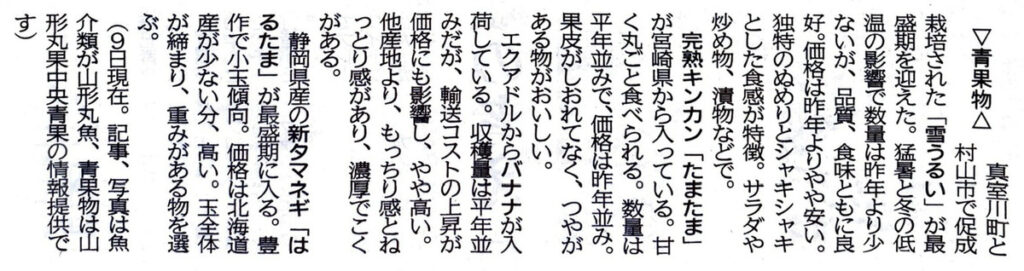 ▽青果物△
真室川町と
村山市で促成
栽培された「雪うるい」が最
盛期を迎えた。猛暑と冬の低
温の影響で数量は昨年より少
ないが、品質、食味ともに良
好。価格は昨年よりやや安い。
独特のぬめりとシャキシャキ
とした食感が特徴。サラダや
炒め物、漬物などで。
完熟キンカン「たまたま」
が宮崎県から入っている。甘
く丸ごと食べられる。数量は
平年並みで、価格は昨年並み。
果皮がしおれてなく、つやが
ある物がおいしい。
エクアドルからバナナが入
荷している。収穫量は平年並
みだが、輸送コストの上昇が
価格にも影響し、やや高い。
他産地より、もっちり感とね
っとり感があり、濃厚でこく
がある。
静岡県産の新タマネギ「は
るたま」が最盛期に入る。豊
作で小玉傾向。価格は北海道
産が少ない分、高い。玉全体
が締まり、重みがある物を選
ぶ。
（９日現在。記事、写真は魚
介類が山形丸魚、青果物は山
形丸果中央青果の情報提供で
す）